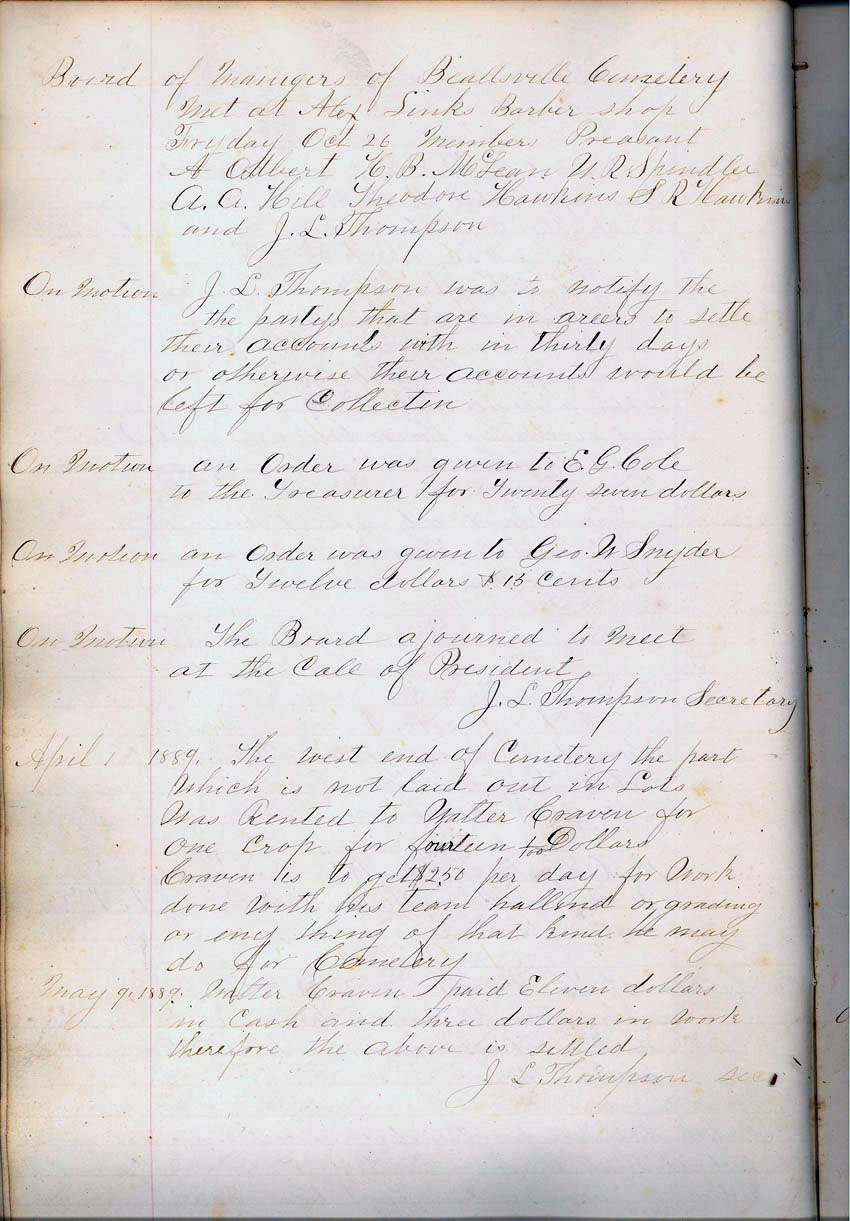 Board of Manigers of Beallsville Cemetery
Met at Alex Links Barber shop
Fryday Oct 26 Members Preasant
A Albert H. B. McLean U. R Spindler
A. A. Hill Theodore Hawkins S R Hawkins
and J. L. Thompson
On Motion J. L. Thompson was to notify the
the partys that are in areers to settle
their accounts with in thirty days
or otherwise their accounts would be
left for Collectin
On Motion an Order was given to E. G. Cole
to the Treasurer for Twenty seven dollars
On Motion an Order was given to Geo. W Snyder
for Twelve dollars & 15 Cents
On Motion The Board ajourned to Meet
at the Call of President
J. L. Thompson Secretary
April 1 1889. The west end of Cemetery the part
Which is not laid out in Lots
Was Rented to Walter Craven for
One Crop for fourteen Dollars
Craven is to get $2.50 per day for Work
done with his team or grading
or eny thing of that kind he may
do for Cemetery
May 9. 1889. Walter Craven paid Eleven dollars
in Cash and three dollars in work
therefore the above is settled
J L Thompson sec